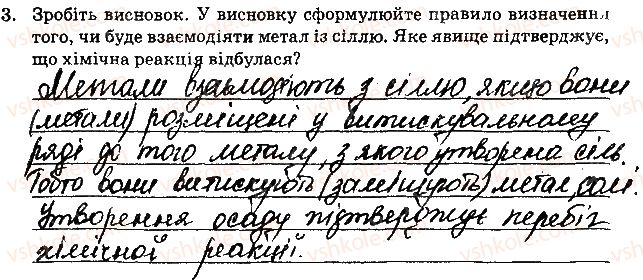 3. Зробіть висновок. У висновку сформулюйте правило визначення
того, чи буде взаємодіяти метал із сіллю. Яке явище підтверджує,
що хімічна реакція відбулася?
Метали взаємодіють з сіллю, якщо вони
(метали) розміщені у витискувальному
ряді до того металу, з якого утворена сіль.
Тобто вони витискують (заміщують) метал солі.
Утворення осаду підтверджує перебіг
хімічної реакції.